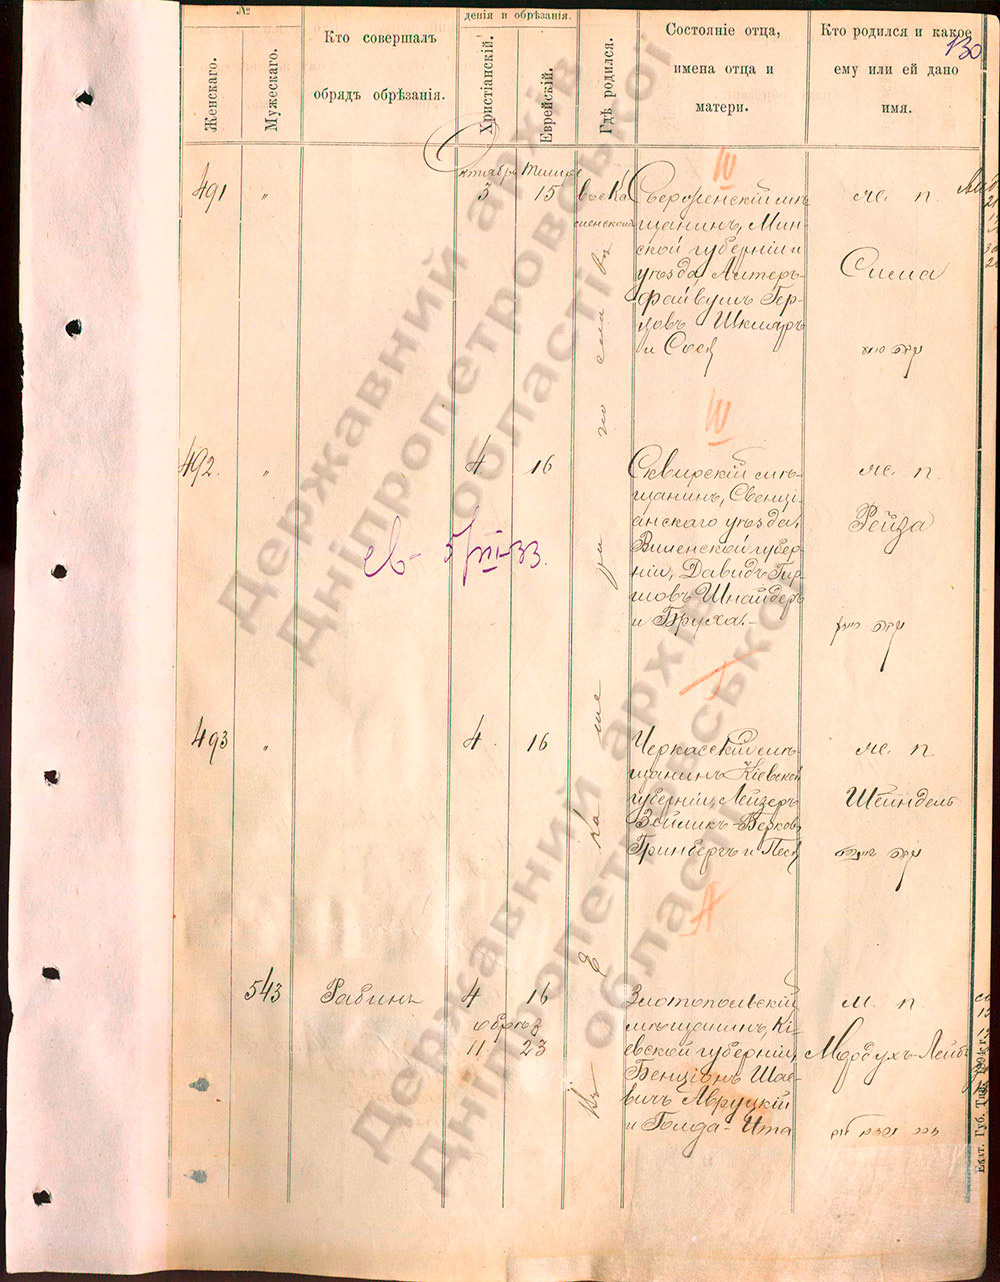 №
Женскаго.
Мужескаго.
Кто совершалъ
обрядъ обрѣзанія.
денія и обрѣзанія.
Христіанскій.
Еврейскій.
Гдѣ родился.
Состояніе отца,
имена отца и
матери.
Кто родился и какое
ему или ей дано
имя.
130
Октябрь Тишре
IV
491 " 3 15
мѣ-
щанинъ, Мин-
ской губерніи и
уѣзда, Алтеръ-
Файвушъ Гер-
цовъ Шкляръ
и Сося
ж. п.
Сима
IV
492. " 4 16
Сквирскій мѣ-
щанинъ, Свенці-
анскаго уѣзда,
Виленской губер-
ніи, Давидъ Гир-
шовъ Шнайдеръ
и Бруха.-
ж. п.
Рейза
5/III-33.
493 " 4. 16
Черкасскій мѣ-
щанинъ Кіевской
губерніи, Лейзеръ
Зейликъ-Берковъ
Гринбергъ и Песя
ж. п
Шейндель
въ Екатеринославѣ
543 Равинъ 4 16
обрѣз
11 23
Златопольскій
мѣщанинъ, Кі-
евской губерніи,
Бенціонъ Шае-
вичъ Авруцкій
и Голда-Ита
м. п.
Мордухъ-Лейб
Екат. Губ. Тип. 1904 г.
Державний архів
Дніпропетровської
області
Державний архів
Дніпропетровської
області